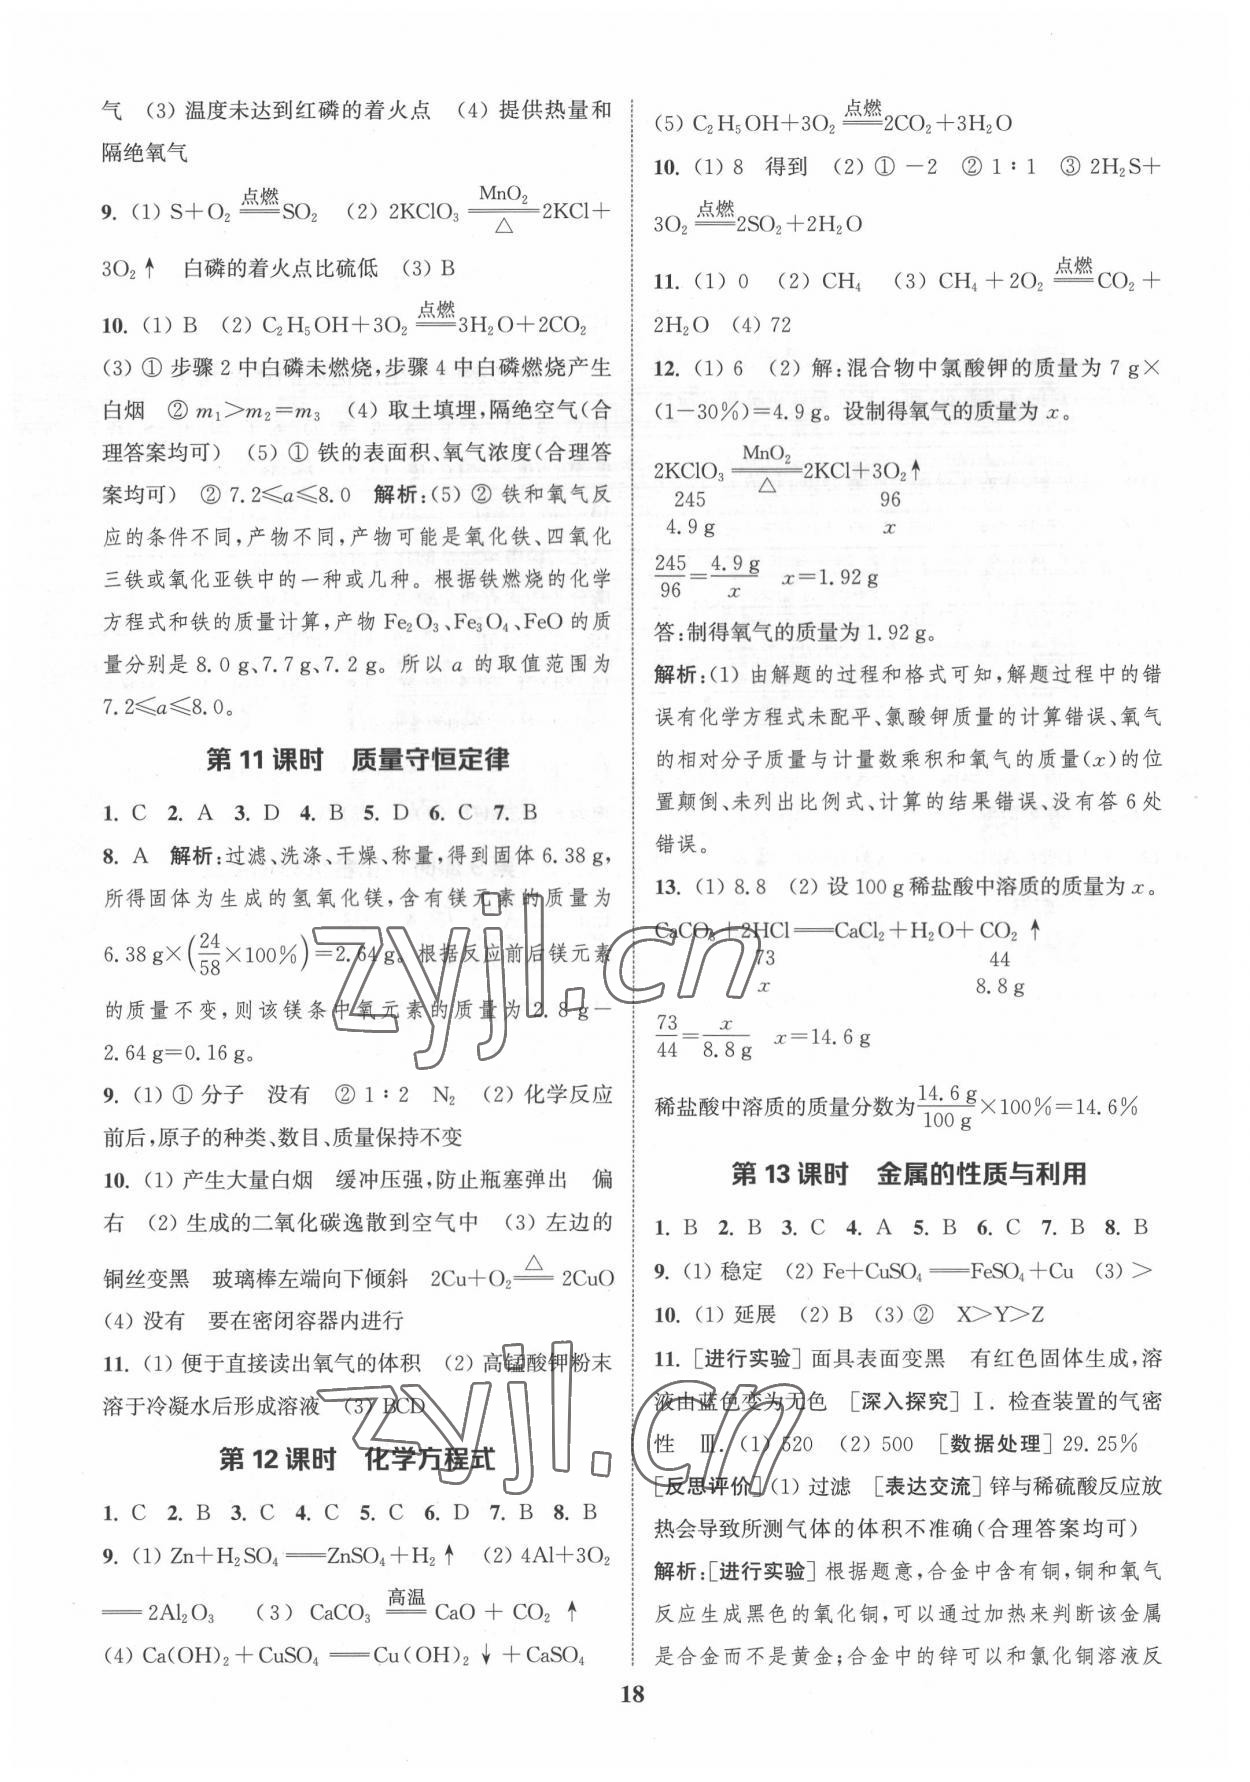 气 (3) 温度未达到红磷的着火点 (4) 提供热量和
隔绝氧气
9. (1) S+O₂ =点燃= SO₂ (2) 2KClO₃ =MnO₂/△= 2KCl+
3O₂↑ 白磷的着火点比硫低 (3) B
10. (1) B (2) C₂H₅OH+3O₂ =点燃= 3H₂O+2CO₂
(3) ① 步骤 2 中白磷未燃烧,步骤 4 中白磷燃烧产生
白烟 ② m₁>m₂=m₃ (4) 取土填埋,隔绝空气(合
理答案均可) (5) ① 铁的表面积、氧气浓度(合理答
案均可) ② 7.2≤a≤8.0 解析:(5) ② 铁和氧气反
应的条件不同,产物不同,产物可能是氧化铁、四氧化
三铁或氧化亚铁中的一种或几种。根据铁燃烧的化学
方程式和铁的质量计算,产物 Fe₂O₃、Fe₃O₄、FeO 的质
量分别是 8.0 g、7.7 g、7.2 g。所以 a 的取值范围为
7.2≤a≤8.0。
第 11 课时 质量守恒定律
1. C 2. A 3. D 4. B 5. D 6. C 7. B
8. A 解析:过滤、洗涤、干燥、称量,得到固体 6.38 g,
所得固体为生成的氢氧化镁,含有镁元素的质量为
6.38 g×(24/58×100%)=2.64 g。根据反应前后镁元素
的质量不变,则该镁条中氧元素的质量为 2.8 g-
2.64 g=0.16 g。
9. (1) ① 分子 没有 ② 1:2 N₂ (2) 化学反应
前后,原子的种类、数目、质量保持不变
10. (1) 产生大量白烟 缓冲压强,防止瓶塞弹出 偏
右 (2) 生成的二氧化碳逸散到空气中 (3) 左边的
铜丝变黑 玻璃棒左端向下倾斜 2Cu+O₂ =△= 2CuO
(4) 没有 要在密闭容器内进行
11. (1) 便于直接读出氧气的体积 (2) 高锰酸钾粉末
溶于冷凝水后形成溶液 (3) BCD
第 12 课时 化学方程式
1. C 2. B 3. C 4. C 5. C 6. D 7. B 8. B
9. (1) Zn+H₂SO₄ ══ ZnSO₄+H₂↑ (2) 4Al+3O₂
══ 2Al₂O₃ (3) CaCO₃ =高温= CaO + CO₂ ↑
(4) Ca(OH)₂+CuSO₄ ══ Cu(OH)₂↓+CaSO₄
(5) C₂H₅OH+3O₂ =点燃= 2CO₂+3H₂O
10. (1) 8 得到 (2) ① -2 ② 1:1 ③ 2H₂S+
3O₂ =点燃= 2SO₂+2H₂O
11. (1) 0 (2) CH₄ (3) CH₄+2O₂ =点燃= CO₂+
2H₂O (4) 72
12. (1) 6 (2) 解:混合物中氯酸钾的质量为 7 g×
(1-30%)=4.9 g。设制得氧气的质量为 x。
2KClO₃ =MnO₂/△= 2KCl+3O₂↑
245 96
4.9 g x
245/96=4.9 g/x x=1.92 g
答:制得氧气的质量为 1.92 g。
解析:(1) 由解题的过程和格式可知,解题过程中的错
误有化学方程式未配平、氯酸钾质量的计算错误、氧气
的相对分子质量与计量数乘积和氧气的质量(x)的位
置颠倒、未列出比例式、计算的结果错误、没有答 6 处
错误。
13. (1) 8.8 (2) 设 100 g 稀盐酸中溶质的质量为 x。
CaCO₃+2HCl ══ CaCl₂+H₂O+ CO₂ ↑
73 44
x 8.8 g
73/44=x/8.8 g x=14.6 g
稀盐酸中溶质的质量分数为14.6 g/100 g×100%=14.6%
第 13 课时 金属的性质与利用
1. B 2. B 3. C 4. A 5. B 6. C 7. B 8. B
9. (1) 稳定 (2) Fe+CuSO₄ ══ FeSO₄+Cu (3) >
10. (1) 延展 (2) B (3) ② X>Y>Z
11. [进行实验] 面具表面变黑 有红色固体生成,溶
液由蓝色变为无色 [深入探究] Ⅰ. 检查装置的气密
性 Ⅲ. (1) 520 (2) 500 [数据处理] 29.25%
[反思评价] (1) 过滤 [表达交流] 锌与稀硫酸反应放
热会导致所测气体的体积不准确(合理答案均可)
解析:[进行实验] 根据题意,合金中含有铜,铜和氧气
反应生成黑色的氧化铜,可以通过加热来判断该金属
是合金而不是黄金;合金中的锌可以和氯化铜溶液反
18
zyjl.cn
zyjl.cn